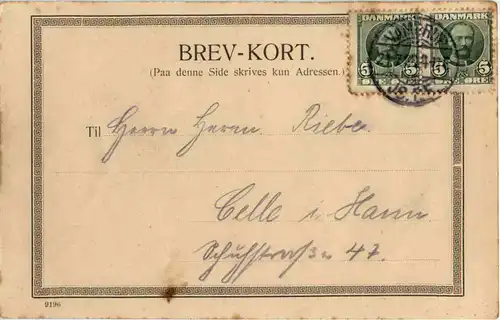 DANMARK DANMARK
5 5 5 5
BREV-KORT.
(Paa denne Side skrives kun Adressen.)
Til Herrn Herm. Riebe.
Celle i. Hann.
Schuhstraße 47.
9196